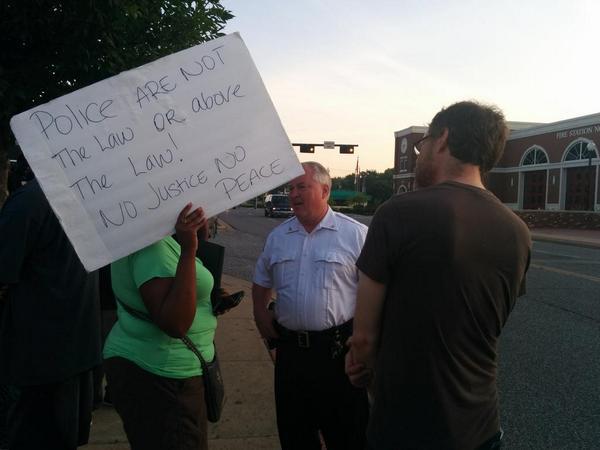 POLICE ARE NOT
The Law OR above
The Law!
NO JUSTICE NO
PEACE
FIRE STATION